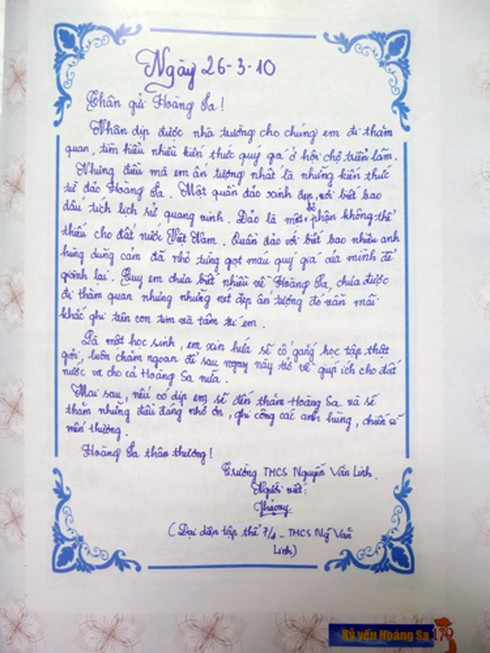 Ngày 26-3-10
Thân gửi Hoàng Sa!
Nhân dịp được nhà trường cho chúng em đi thăm
quan, tìm hiểu nhiều kiến thức quý giá ở hội chợ triển lãm.
Nhưng điều mà em ấn tượng nhất là những kiến thức
về đảo Hoàng Sa. Một quần đảo xinh đẹp, với biết bao
dấu tích lịch sử quang vinh. Đảo là một bộ phận không thể
thiếu cho đất nước Việt Nam. Quần đảo với biết bao nhiêu anh
hùng dũng cảm đã nhỏ từng giọt máu quý giá của mình để
giành lại. Tuy em chưa biết nhiều về Hoàng Sa, chưa được
đi thăm quan nhưng những nét đẹp ấn tượng đó vẫn mãi
khắc ghi trên con tim và tâm trí em.
Là một học sinh, em xin hứa sẽ cố gắng học tập thật
giỏi, luôn chăm ngoan để sau này trở về giúp ích cho đất
nước và cho cả Hoàng Sa nữa.
Mai sau, nếu có dịp em sẽ đến thăm Hoàng Sa và sẽ
thăm những dấu đáng nhớ ơn, ghi công các anh hùng, chiến sĩ
mến thương.
Hoàng Sa thân thương!
Trường THCS Nguyễn Văn Linh.
Người viết:
(Đại diện tập thể 7/4 - THCS Ng Văn
Linh)
Kỷ yếu Hoàng Sa 179